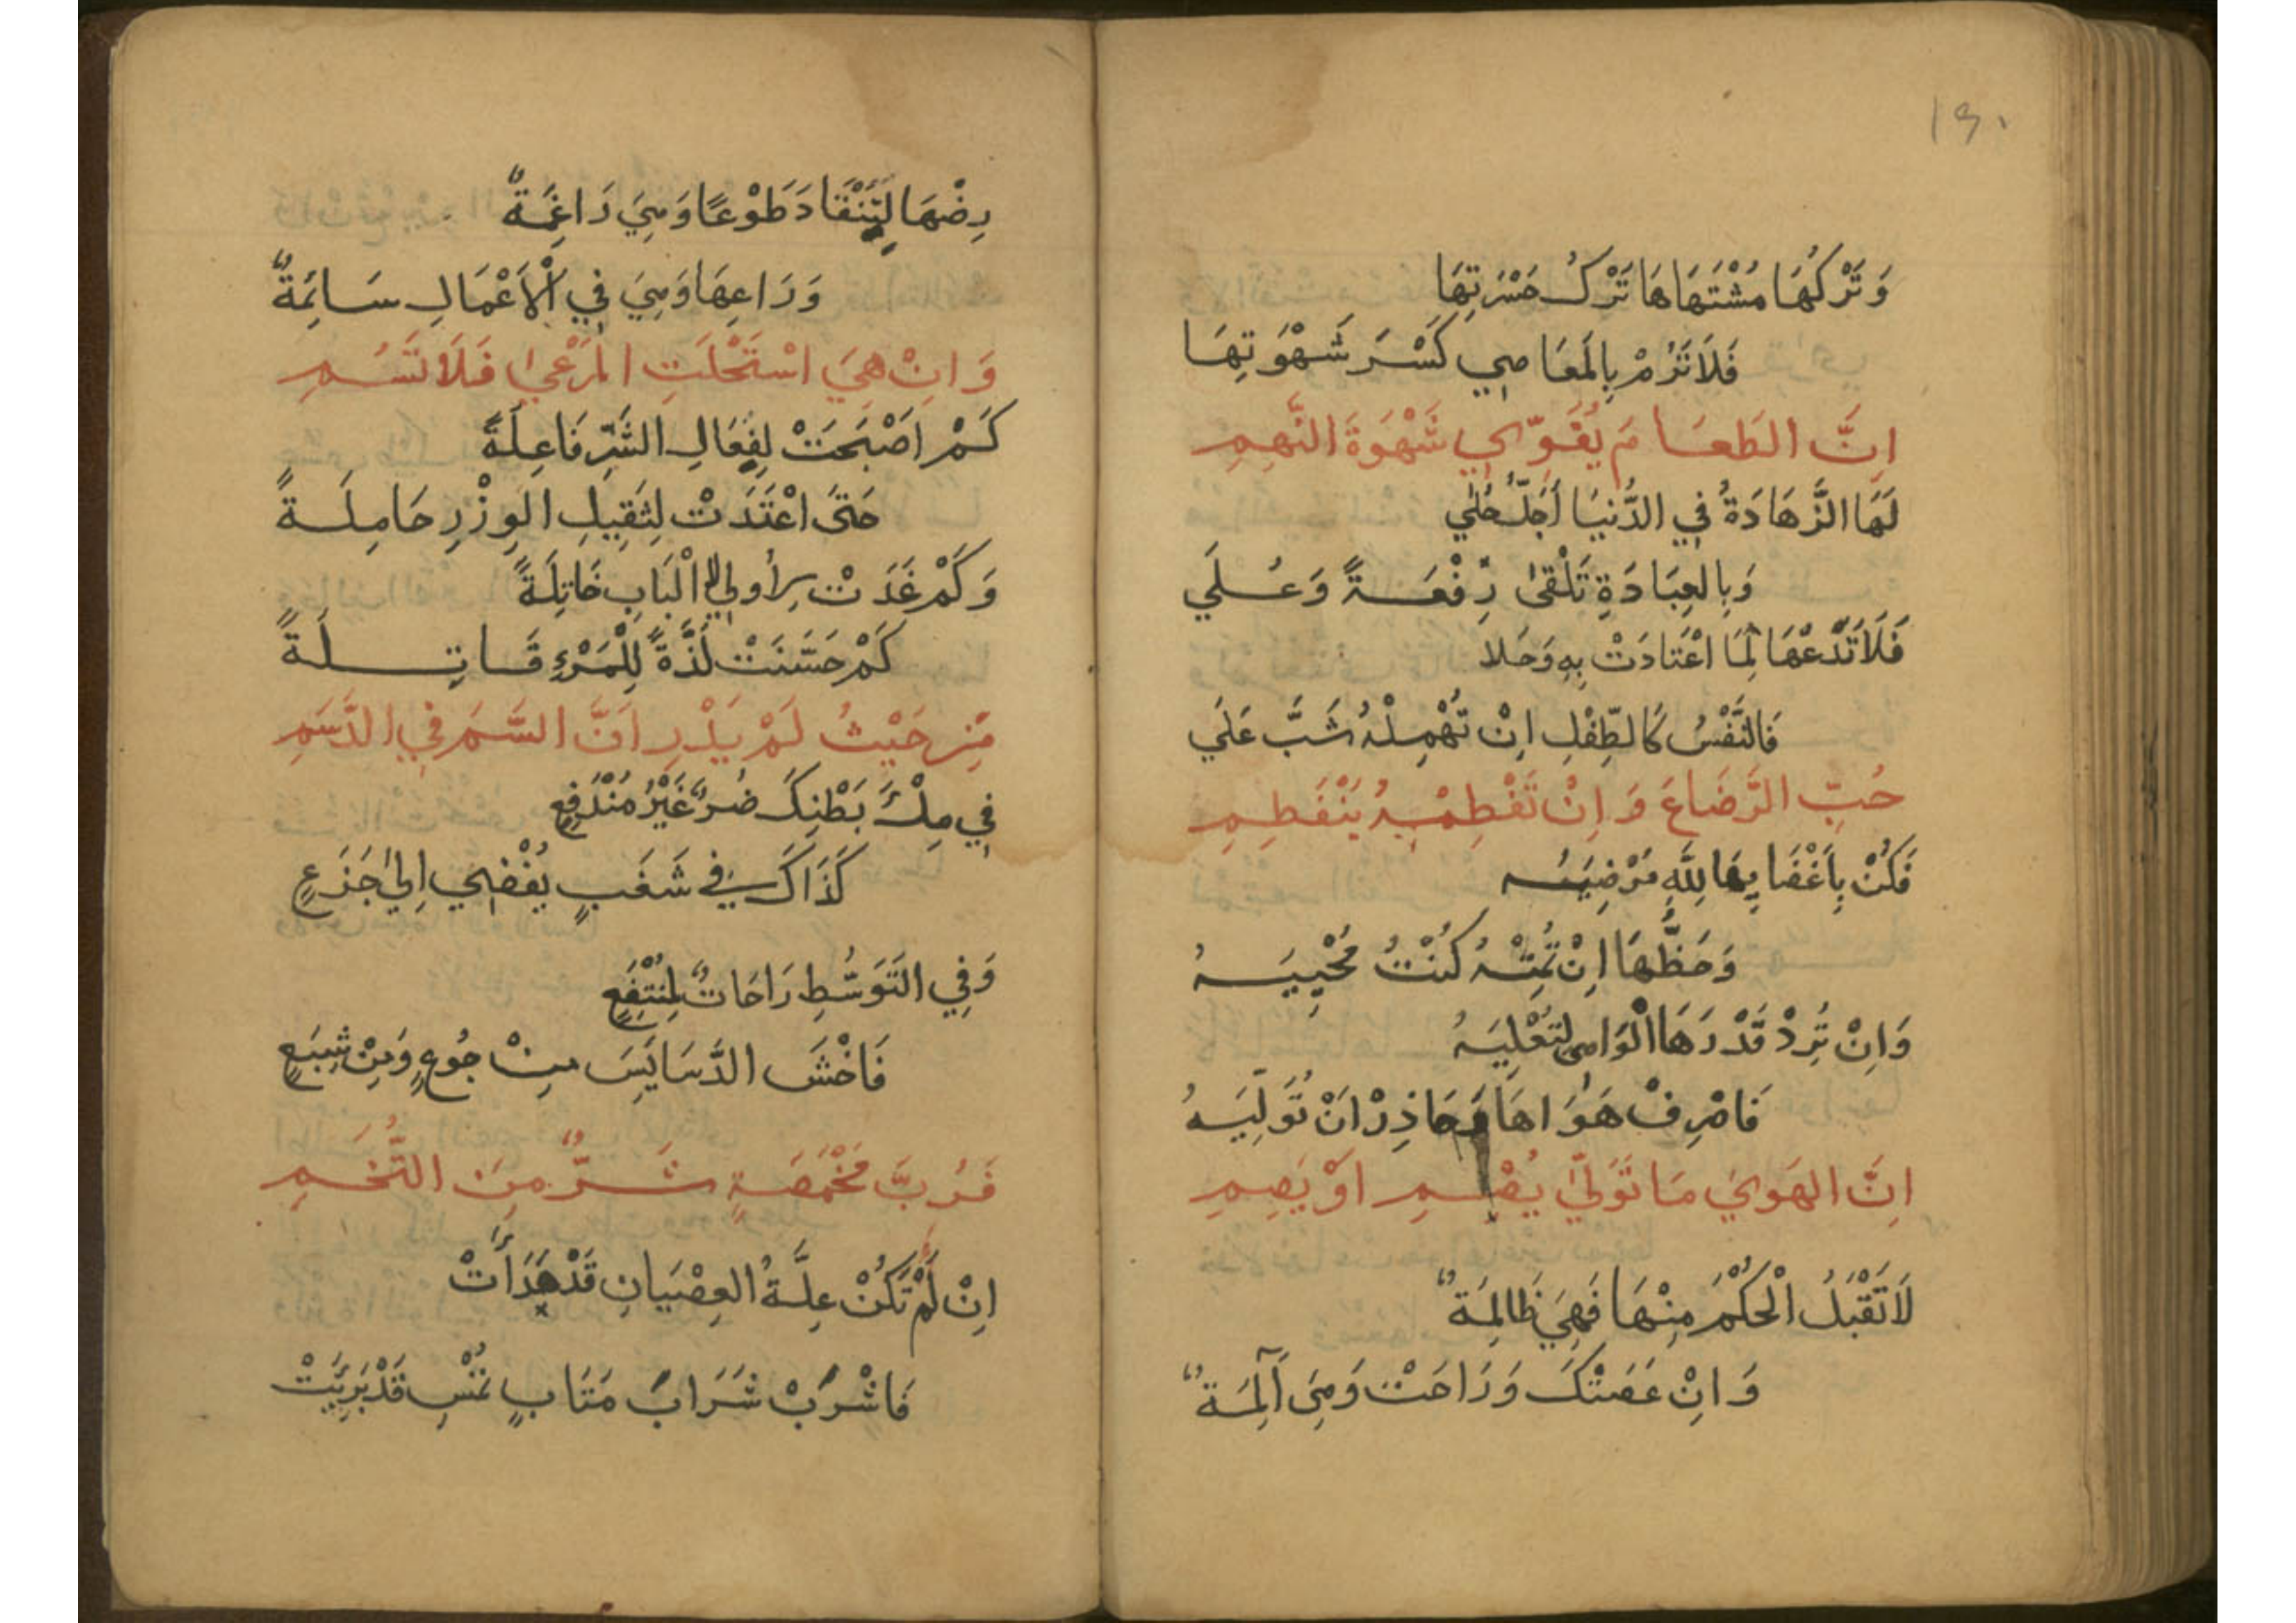 ١٩٠
وَتَرْكُهَا مُشْتَهَاهَا تَرْكُ حَسْرَتِهَا
فَلَا تَرُمْ بِالْمَعَاصِي كَسْرَ شَهْوَتِهَا
اِنَّ الطَعَامَ يُقَوِّي شَهْوَةَ النَّهِمِ
لَهَا الزَّهَادَةُ فِي الدُّنيَا أَجَلُّ حُلِي
وَبِالعِبَادَةِ تَلْقىٰ رِفْعَةً وَعُلَي
فَلَا تَدَعْهَا لِمَا اعْتَادَتْ بِهِ وَحَلا
فَالنَّفْسُ كَالطِّفْلِ اِنْ تُهْمِلْهُ شَبَّ عَلَي
حُبِّ الرَّضَاعَ وَاِنْ تَفْطِمْهُ يَنْفَطِمِ
فَكُنْ بِاَغْضَابِهَا لِلَّهِ مُرْضِيَهُ
وَحَظُّهَا اِنْ تُمِتْهُ كُنْتُ مُحْيِيَهُ
وَاِنْ تُرِدْ قَدْرَهَا الْوَاهِي لِتُعْلِيَهُ
فَاصْرِفْ هَوَاهَا وَحَاذِرْ اَنْ تُوَلِّيَهُ
اِنَّ الهَوىَ مَا تَوَلّىٰ يُصْمِ اَوْ يَصِمِ
لَا تَقْبَلُ الْحُكْمَ مِنْهَا فَهِيَ ظَالِمَةٌ
وَاِنْ عَصَتْكَ وَرَاحَتْ وَهِيَ آلِمَةٌ
رِضْهَا لِتَنْقَادَ طَوْعًا وَهِيَ رَاغِمَةٌ
وَرَاعِهَا وَهِيَ فِي الْاَعْمَالِ سَائِمَةٌ
وَاِنْ هِيَ اسْتَحْلَتِ المَرْعىٰ فَلَا تَسُمِ
كَمْ اَصْبَحَتْ لِفِعَالِ الشَّرِّ فَاعِلَةً
حَتىَ اعْتَدَتْ لِثَقِيلِ الوِزْرِ حَامِلَةً
وَكَمْ غَدَتْ لِأُولِي الْاَلْبَابِ خَاتِلَةً
كَمْ حَسَّنَتْ لَذَّةً لِلْمَرْءِ قَاتِلَةً
مِنْ حَيْثُ لَمْ يَدْرِ اَنَّ السَّمَ فِي الدَّسَمِ
فِي مِلْءِ بَطْنِكَ ضُرٌّ غَيْرُ مُنْدَفِعٍ
كَذَاكَ فِي شَغَبٍ يُفْضِي اِلىٰ جَزَعٍ
وَفِي التَوَسُّطِ رَاحَاتٌ لِمُنْتَفِعٍ
فَاخْشَ الدَّسَايَسَ مِنْ جُوعٍ وَمِنْ شِبَعٍ
فَرُبَّ مَخْمَصَةٍ شَرٌّ مِنَ التُّخَمِ
اِنْ لَمْ تَكُنْ عِلَّةُ العِصْيَانِ قَدْ هَدَأَتْ
فَاشْرَبْ شَرَابَ مَتَابٍ تُمْسِ قَدْ بَرِيَتْ